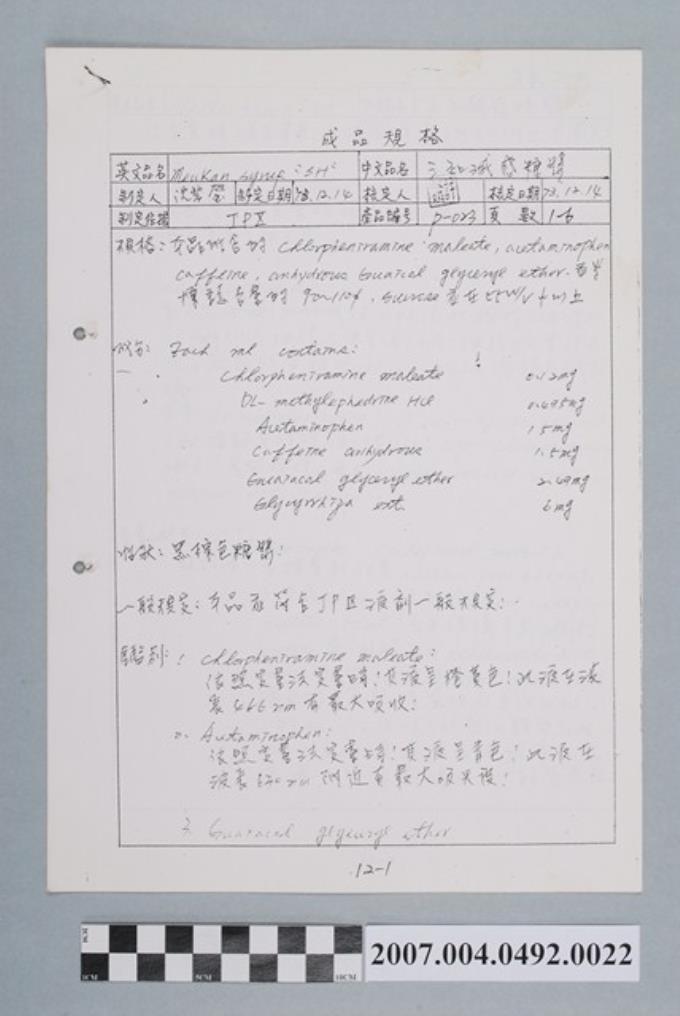 成品規格
英文品名 syrup "SH" 中文品名 糖漿
制定人 沈紫瑩 制定日期 78.12.14 核定人 核定日期 78.12.14
制定依據 JP 產品編號 P-023 頁數 1-6
規格: 本品所含的 chlorpheniramine maleate, acetaminophen
caffeine, anhydrous Guaiacol glyceryl ether.
標誌含量的 90~110%, Sucrose 以上
成分: Each ml contains:
Chlorpheniramine maleate 0.12mg
DL-methylephedrine HCl 0.495mg
Acetaminophen 15mg
Caffeine anhydrous 1.5mg
Guaiacol glyceryl ether 2.49mg
Glycyrrhiza ext. 6mg
性狀: 黑棕色糖漿:
一般規定: 本品應符合JP 液劑一般規定:
鑑別: 1 chlorpheniramine maleate:
依照定量法定量時! 其液呈橙黃色! 此液在波
長 nm 有最大吸收:
2. Acetaminophen:
依照定量法定量時! 其液呈青色! 此液在
波長 附近有最大吸光度!
3. Guaiacol glyceryl ether
12-1
0CM
1CM
5CM
10CM
2007.004.0492.0022